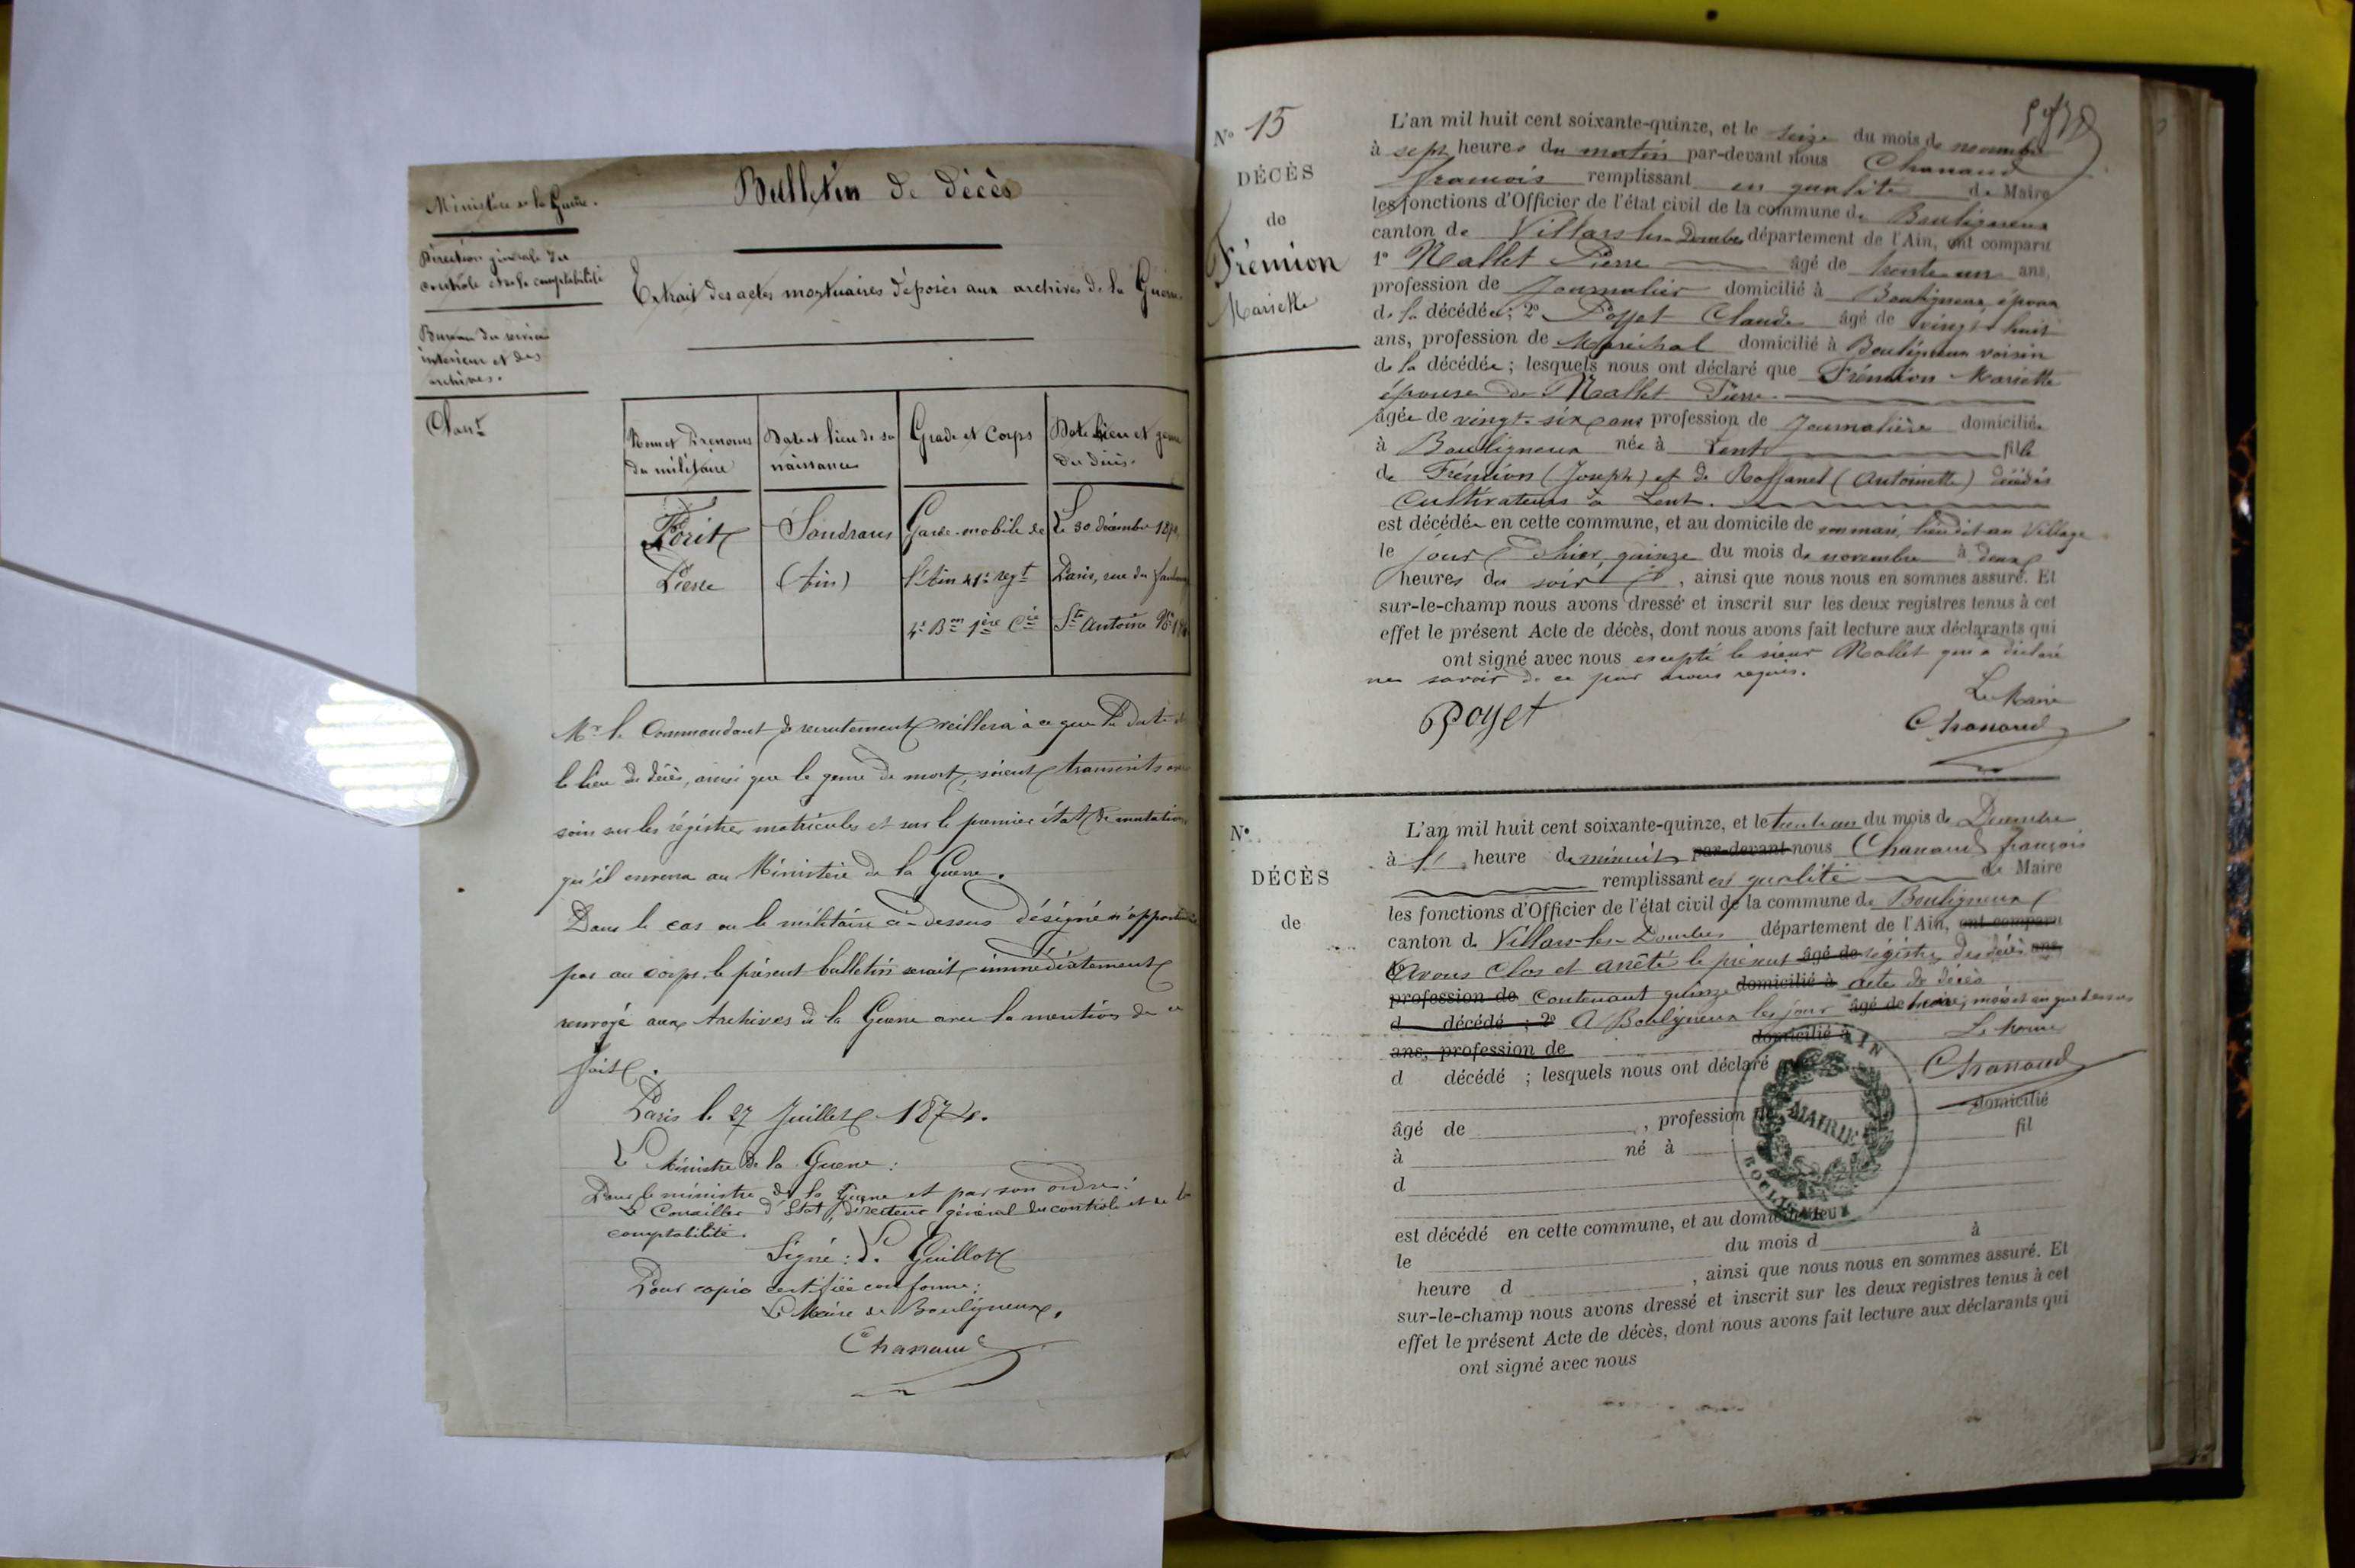 Ministère de la Guerre.
Direction générale du
contrôle et de la comptabilité
Bureau du service
intérieur et des
archives.
Clas.t
Bulletin de décès
Extrait des actes mortuaires déposés aux archives de la Guerre
Nom et Prénoms du militaire
Date et lieu de sa naissance
Grade et Corps
Date lieu et genre du décès.
Forit Pierre
Sandrans (Ain)
Garde-mobile de l'Ain 41e regt 4e Bon 1ère Cie
Le 30 décembre 1870, Paris, rue du Faubourg St Antoine No
Mr le Commandant de recrutement veillera à ce que la date
le lieu du décès, ainsi que le genre de mort, soient transcrits avec
soin sur les régistres matricules et sur le premier état de mutations
qu'il enverra au Ministère de la Guerre.
Dans le cas ou le militaire ci-dessus désigné n'appartiendrait
pas au corps, le présent bulletin serait immédiatement
renvoyé aux Archives de la Guerre avec la mention de ce
fait.
Paris le 27 Juillet 1874.
Le Ministre de la Guerre:
Pour le ministre de la Guerre et par son ordre:
Le Conseiller d'Etat, directeur général du contrôle et de la
comptabilité.
Signé: Guillot
Pour copie certifiée conforme:
Le Maire de Bouligneux,
Chanaud
No 15
DÉCÈS
de
Frémion
Mariette
L'an mil huit cent soixante-quinze, et le seize du mois de novembre
à sept heures du matin par-devant nous Chanaud
françois remplissant en qualité de Maire
les fonctions d'Officier de l'état civil de la commune de Bouligneux
canton de Villars les Dombes département de l'Ain, ont comparu
1° Mallet Pierre âgé de trente un ans,
profession de Journalier domicilié à Bouligneux époux
de la décédée; 2° Poyet Claude âgé de vingt huit
ans, profession de Maréchal domicilié à Bouligneux voisin
de la décédée; lesquels nous ont déclaré que Frémion Mariette
épouse de Mallet Pierre
âgée de vingt-six ans profession de Journalière domiciliée
à Bouligneux née à Lent fille
de Frémion (Joseph) et de Roffanel (Antoinette) décédés
Cultivateurs à Lent.
est décédée en cette commune, et au domicile de son mari, lieu dit au Village
le jour d'hier, quinze du mois de novembre à deux
heures du soir, ainsi que nous nous en sommes assuré. Et
sur-le-champ nous avons dressé et inscrit sur les deux registres tenus à cet
effet le présent Acte de décès, dont nous avons fait lecture aux déclarants qui
ont signé avec nous excepté le sieur Mallet qui a déclaré
ne savoir de ce par nous requis.
Le Maire
Poyet
Chanaud
No
DÉCÈS
de
L'an mil huit cent soixante-quinze, et le trente un du mois de Décembre
à heure de minuit par-devant nous Chanaud françois
remplissant en qualité de Maire
les fonctions d'Officier de l'état civil de la commune de Bouligneux
canton de Villars-les-Dombes département de l'Ain, ont comparu
Avons Clos et arrêté le présent âgé de régistre des décès ans,
profession de Contenant quinze domicilié à actes de décès
d décédé ; 2° A Bouligneux les jour âgé de heure, mois et an que dessus
ans, profession de domicilié à Le Maire
d décédé ; lesquels nous ont déclaré
Chanaud
domicilié
âgé de , profession de
à né à fil
d
AIN
MAIRIE
BOULIGNEUX
est décédé en cette commune, et au domicile de
le du mois d à
heure d , ainsi que nous nous en sommes assuré. Et
sur-le-champ nous avons dressé et inscrit sur les deux registres tenus à cet
effet le présent Acte de décès, dont nous avons fait lecture aux déclarants qui
ont signé avec nous